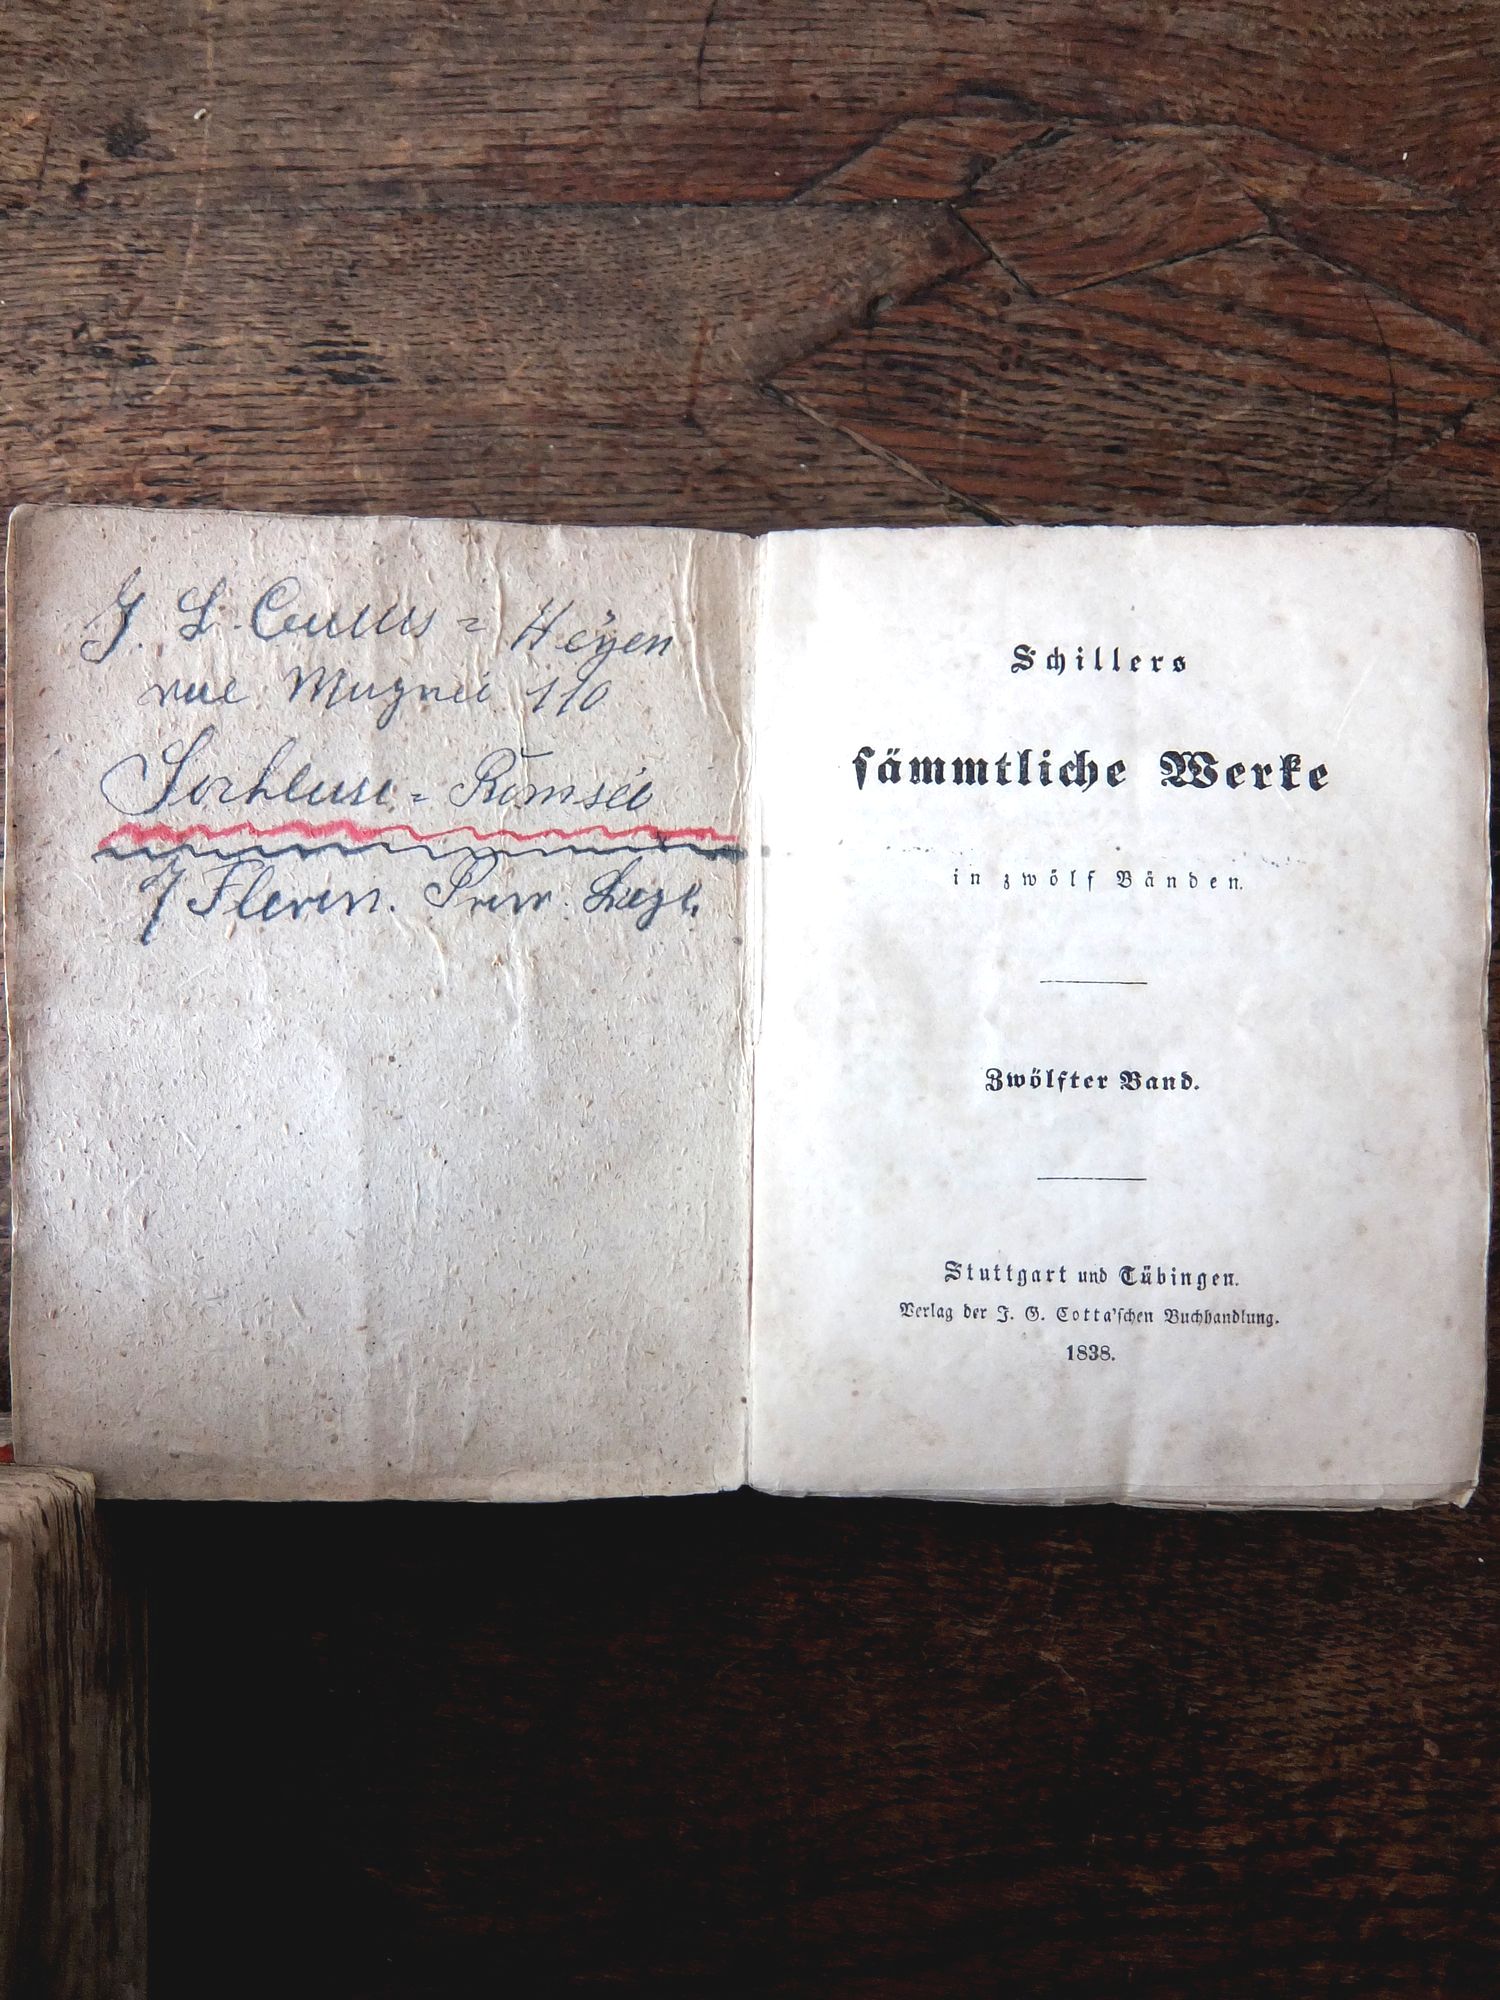 J. L. Cuuus = Heyen
rue Mugnei 110
= Romsée
J Fleron. Prov. Liege
Schillers
sämmtliche Werke
in zwölf Bänden.
Zwölfter Band.
Stuttgart und Tübingen.
Verlag der J. G. Cotta'schen Buchhandlung.
1838.